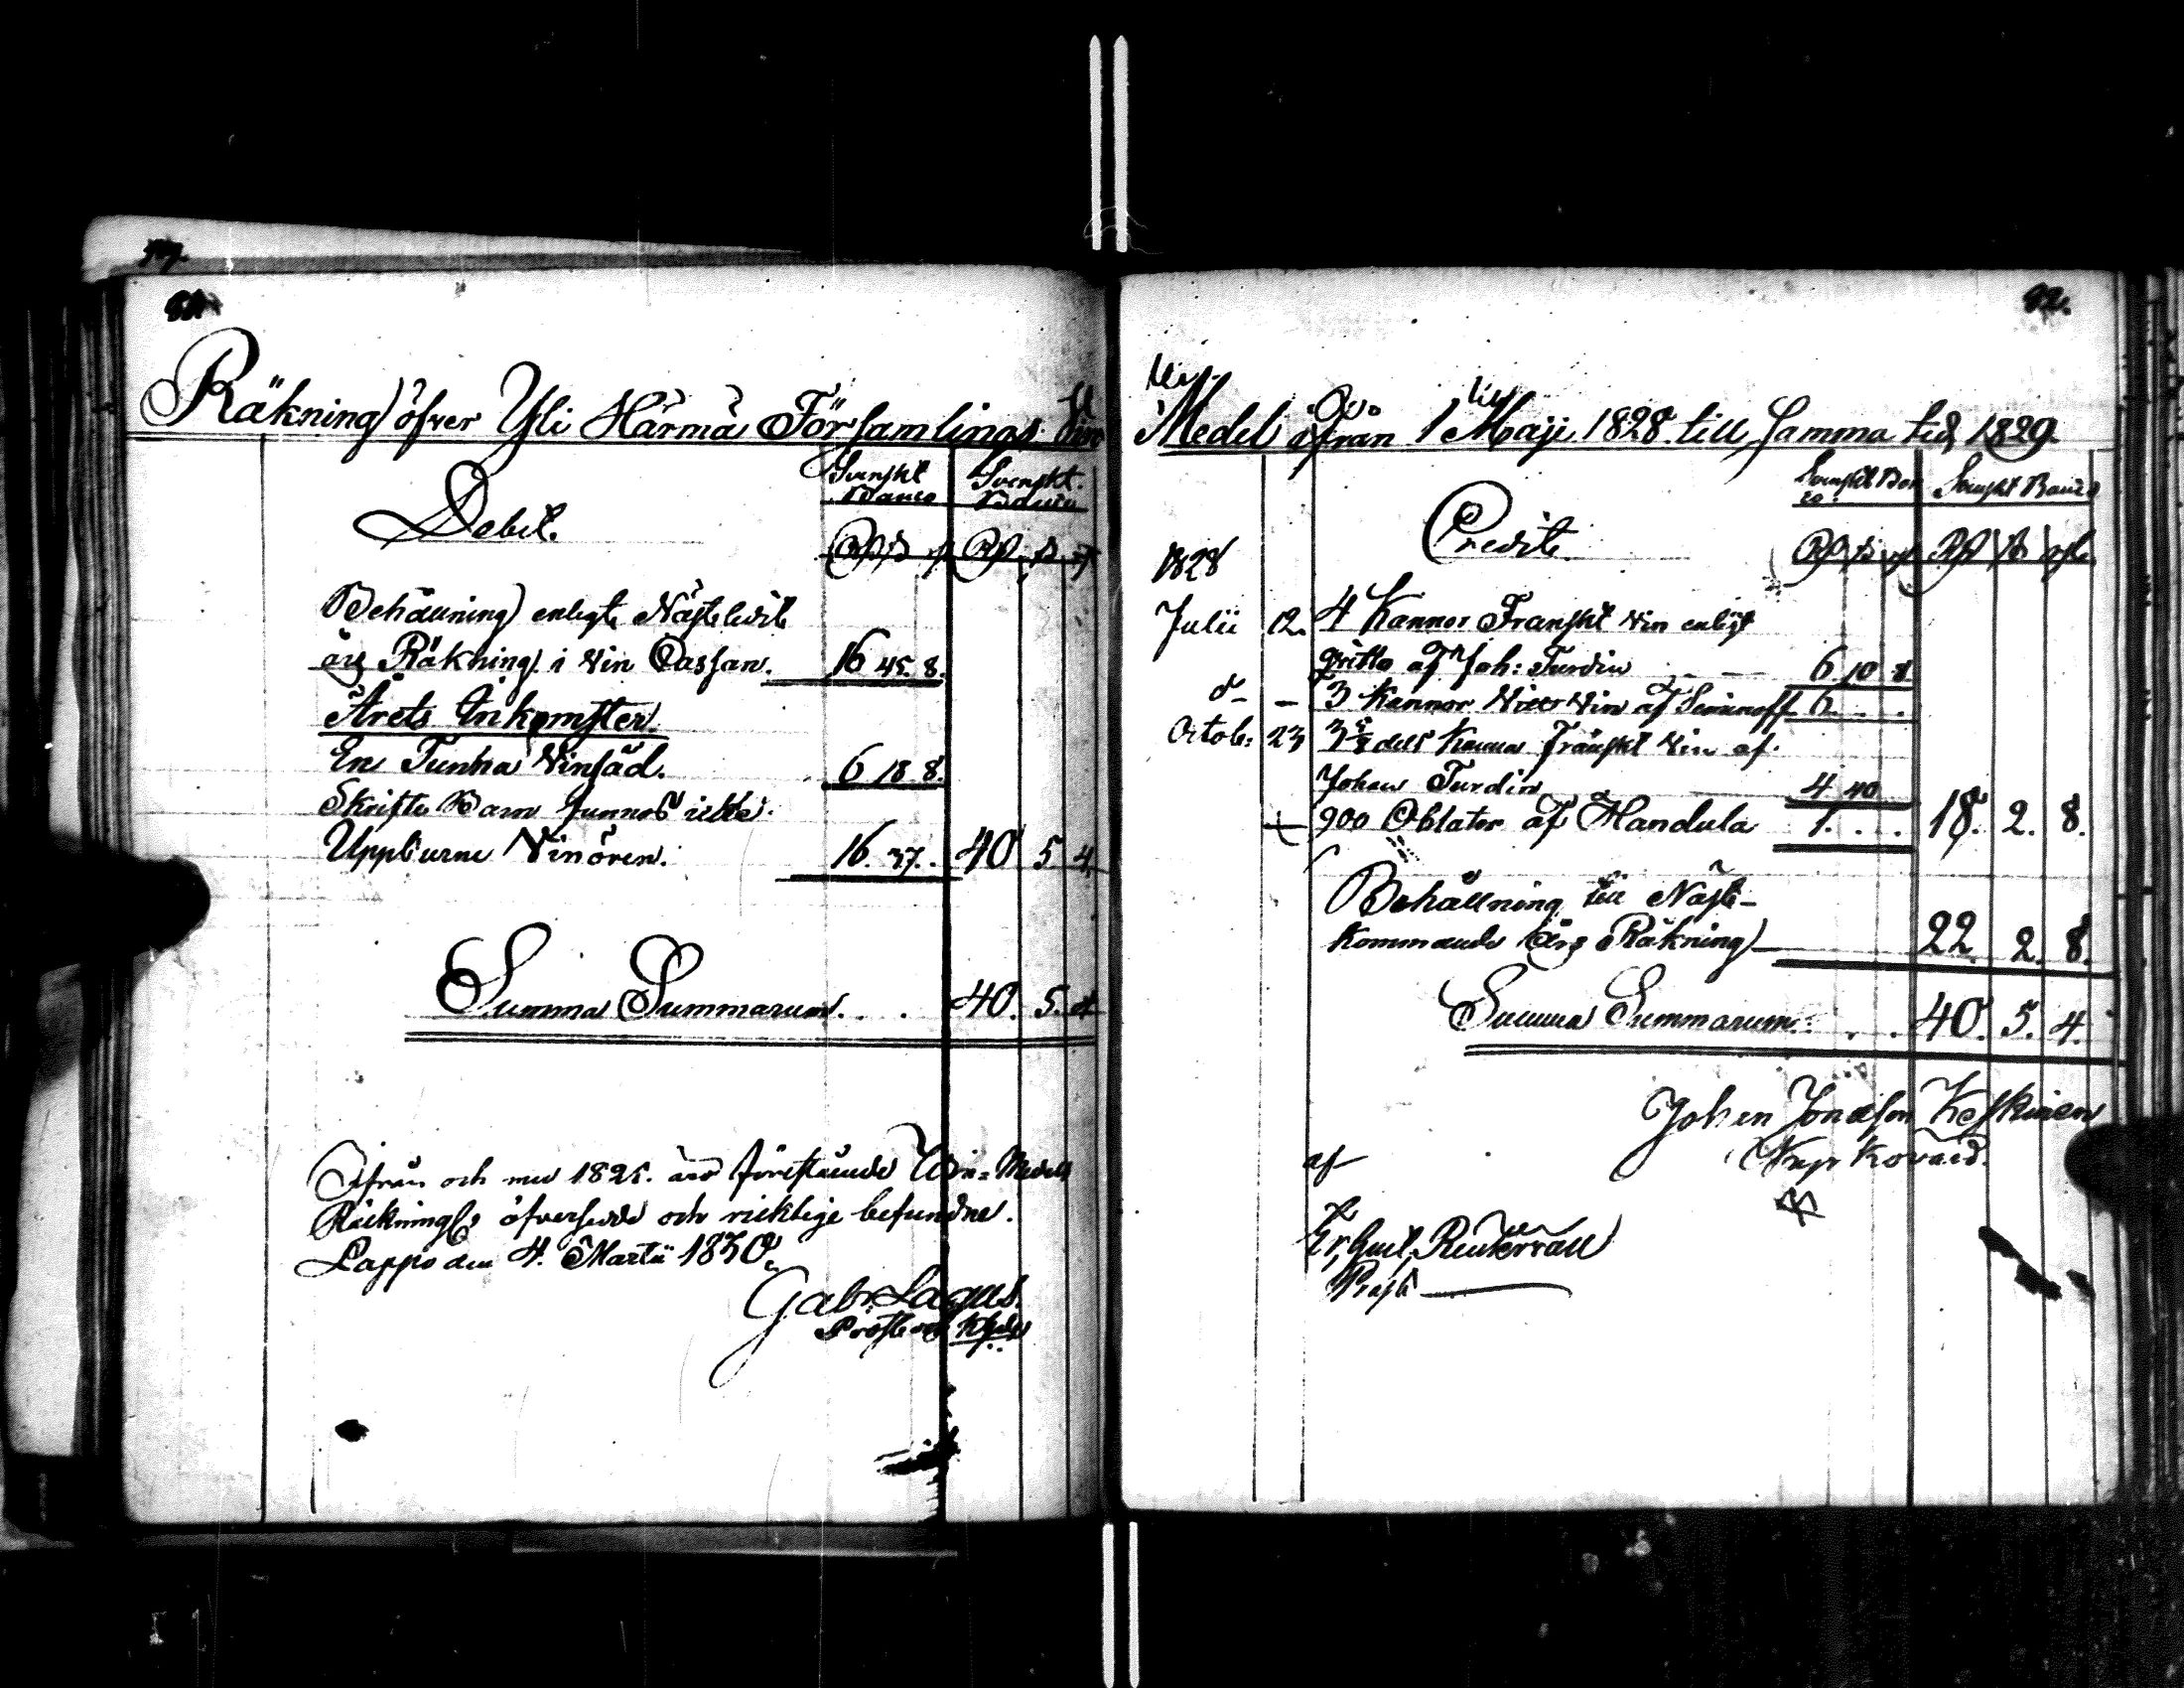 81.
Räkning öfver Yli Härmä Församlings Vin
Debet.
Svenskt Banco
Svenskt Banco
Behållning enligt Nästledit
års Räkning i Vin Cassan. 16 45. 8.
Årets Inkomster.
En Tunna Vinsäd. 6 18 8.
Skrifte Barn funnos icke.
Uppburne Vinören. 16. 37. 40 5 4
Summa Summarum. . . 40. 5. 4
Ifrån och med 1825. äro förestående Win-Medels
Räkningar öfversedde och ricktige befundne.
Lappo den 4. Martii 1830.
Gab. Lagus.
Prost och Khde
82.
Medel ifrån 1 Maji 1828 till samma tid 1829
Credit
Svenskt Ban
co.
Svenskt Banco
1828
Julii 12. 4 Kannor Franskt Vin enligt
qvitto af Joh: Turdin 6. 10. 8
d - 3 Kannor Vin af Simanoff 6. . .
Octob: 23 3 dels Kanna Franskt Vin af
Johan Turdin 4 40
900 Oblater af Handula 1. . . . 18. 2. 8.
Behållning till Näst-
kommande års Räkning 22. 2. 8.
Summa Summarum. . . 40. 5. 4.
Johan Jonasson Keskinen
af
Kyrkovärd.